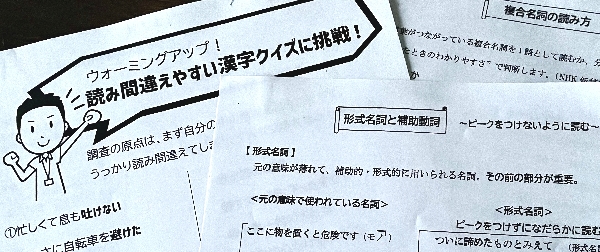 ウォーミングアップ！
読み間違えやすい漢字クイズに挑戦！
調査の原点は、まず自分の
うっかり読み間違えてしま
①忙しくて息も吐けない
さに自転車を避けた
複合名詞の読み方
がつながっている複合名詞を1語として読むか、分
ときのわかりやすさ”で判断します。（NHK
か
形式名詞と補助動詞
～ピークをつけないように読む～
【形式名詞】
元の意味が薄れて、補助的・形式的に用いられる名詞。その前の部分が重要。
＜元の意味で使われている名詞＞
ここに物を置くと危険です（モア）
＜形式名詞＞
ピークをつけずになだらかに読む
ついに諦めたものとみえて（形式名